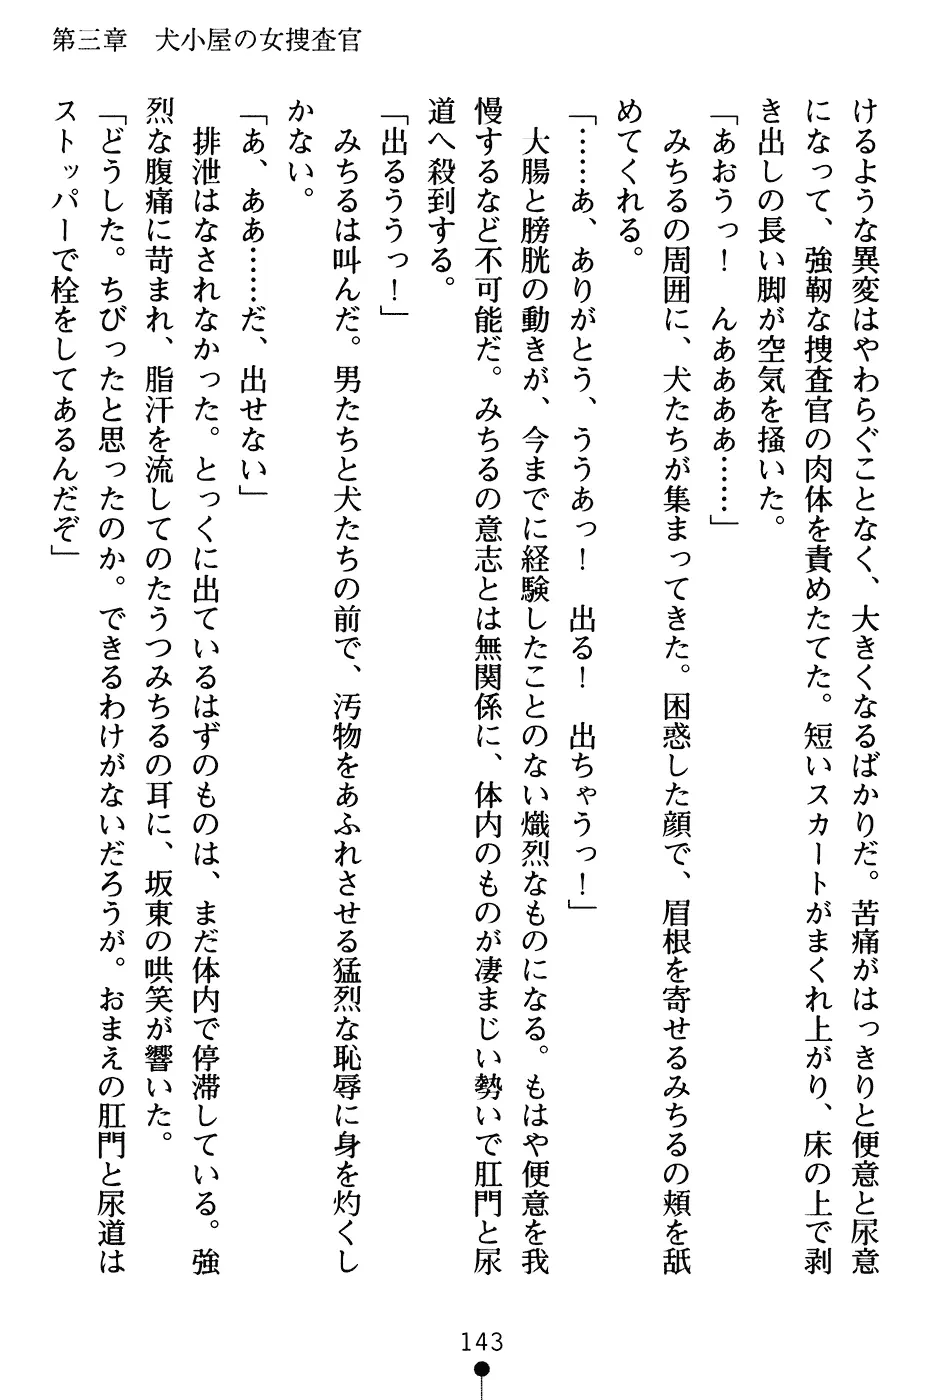 第三章　犬小屋の女捜査官
けるような異変はやわらぐことなく、大きくなるばかりだ。苦痛がはっきりと便意と尿意
になって、強靭な捜査官の肉体を責めたてた。短いスカートがまくれ上がり、床の上で剥
き出しの長い脚が空気を掻いた。
「あおうっ！　んあああぁ……」
みちるの周囲に、犬たちが集まってきた。困惑した顔で、眉根を寄せるみちるの頬を舐
めてくれる。
「……あ、ありがとう、ううあっ！　出る！　出ちゃうっ！」
大腸と膀胱の動きが、今までに経験したことのない熾烈なものになる。もはや便意を我
慢するなど不可能だ。みちるの意志とは無関係に、体内のものが凄まじい勢いで肛門と尿
道へ殺到する。
「出るううっ！」
みちるは叫んだ。男たちと犬たちの前で、汚物をあふれさせる猛烈な恥辱に身を灼くし
かない。
「あ、ああ……だ、出せない」
排泄はなされなかった。とっくに出ているはずのものは、まだ体内で停滞している。強
烈な腹痛に苛まれ、脂汗を流してのたうつみちるの耳に、坂東の哄笑が響いた。
「どうした。ちびったと思ったのか。できるわけがないだろうが。おまえの肛門と尿道は
ストッパーで栓をしてあるんだぞ」
143